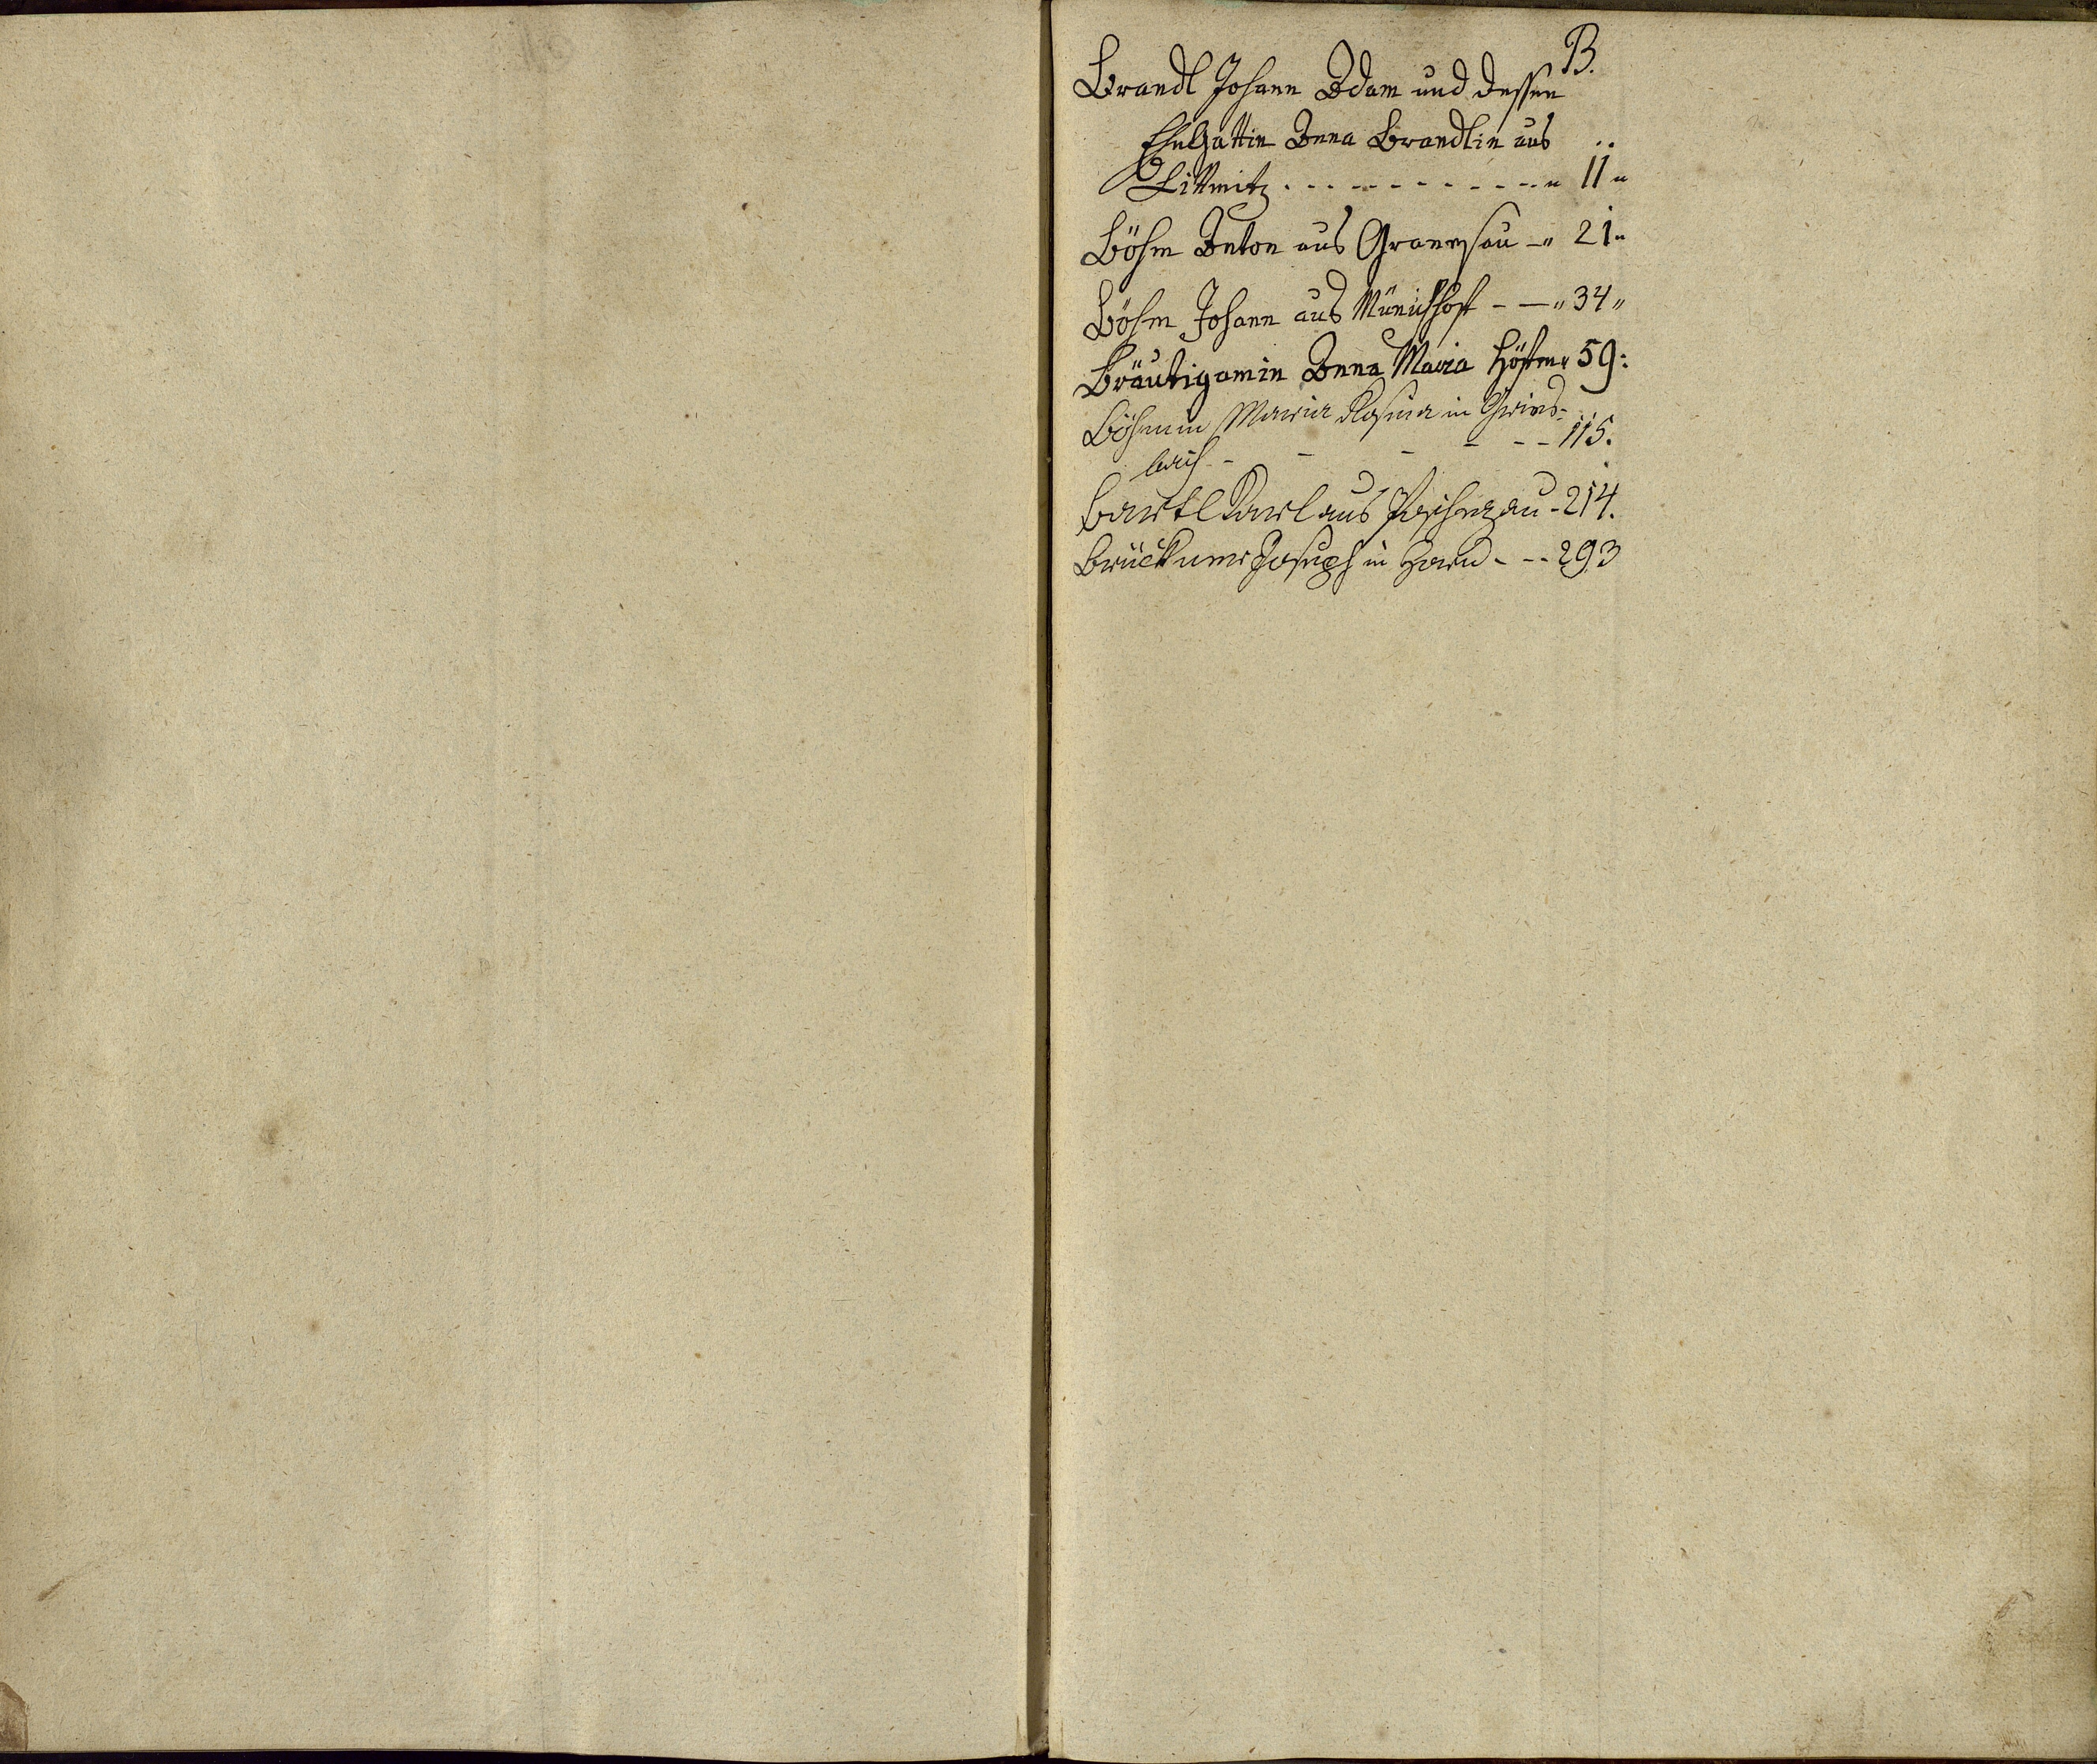 B.
Brandl Johann Adam und dessen
EheGattin Anna Brandlin aus
Littmitz . - - - - - - - - - - - " 11 "
Böhm Anton aus Granesau - " 21 "
Böhm Johann aus Münichhof - - " 34 "
Bräutigamin Anna Maria 59:
Böhmin Maria Rosina in Gries=
bach - - - - - - 115.
Bartl Karl aus - 214.
Brückner Joseph in Horn - - - 293